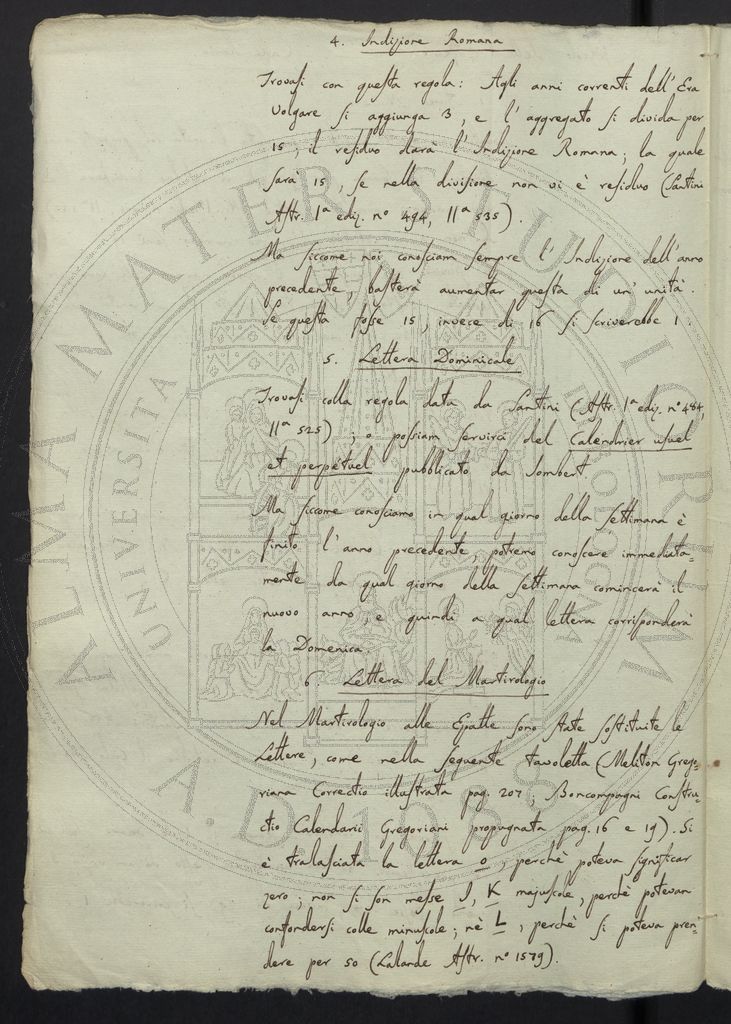 4. Indizione Romana
Trovasi con questa regola: Agli anni correnti dell'Era
Volgare si aggiunga 3, e l'aggregato si divida per
15; il residuo darà l'Indizione Romana; la quale
sarà 15, se nella divisione non vi è residuo (Santini
Astr. 1ª ediz. nº 494, 11ª 535).
Ma siccome noi conosciam sempre l'Indizione dell'anno
precedente, basterà aumentar questa di un'unità.
Se questa fosse 15, invece di 16 si scriverebbe 1.
5. Lettera Dominicale
Trovasi colla regola data da Santini (Astr. 1ª ediz. nº 484,
11ª 525); o possiam servirci del Calendrier usuel
et perpétuel pubblicato da Jombert.
Ma siccome conosciamo in qual giorno della settimana è
finito l'anno precedente, potremo conoscere immediata=
mente da qual giorno della settimana comincerà il
nuovo anno, e quindi a qual lettera corrisponderà
la Domenica.
6 Lettera del Martirologio
Nel Martirologio alle Epatte sono state sostituite le
Lettere, come nella seguente tavoletta (Meliton Grego=
riana Correctio illustrata pag. 207; Boncompagni Constru=
ctio Calendarii Gregoriani propugnata pag. 16 e 19). Si
è tralasciata la lettera o, perchè poteva significar
zero; non si son messe I, K majuscole, perchè potevan
confondersi colle minuscole; nè L, perchè si poteva pren=
dere per 50 (Lalande Astr. nº 1579).
ALMA MATER STUDIORUM
UNIVERSITA
BOLOGNA
A.D. 1088